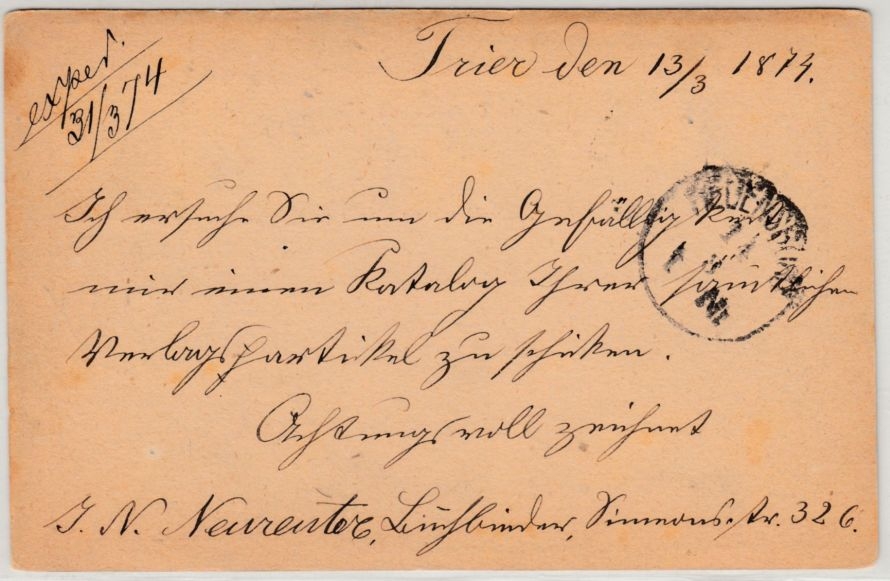 exped.
31/3 74
Trier den 13/3 1874.
Ich ersuche Sie um die Gefälligkeit
mir einen Katalog Ihrer sämtlichen
Verlagsartikel zu schicken.
Achtungsvoll zeichnet
J. N. Neureuter, Buchbinder, Simeonstr. 326.